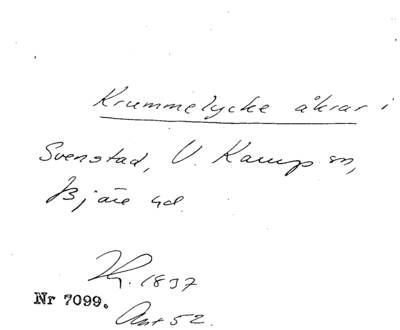 Krummelycke åkrar i
Svenstad, V. Karup sn,
Bjäre hd.
1837
Nr 7099.
Akt 52.